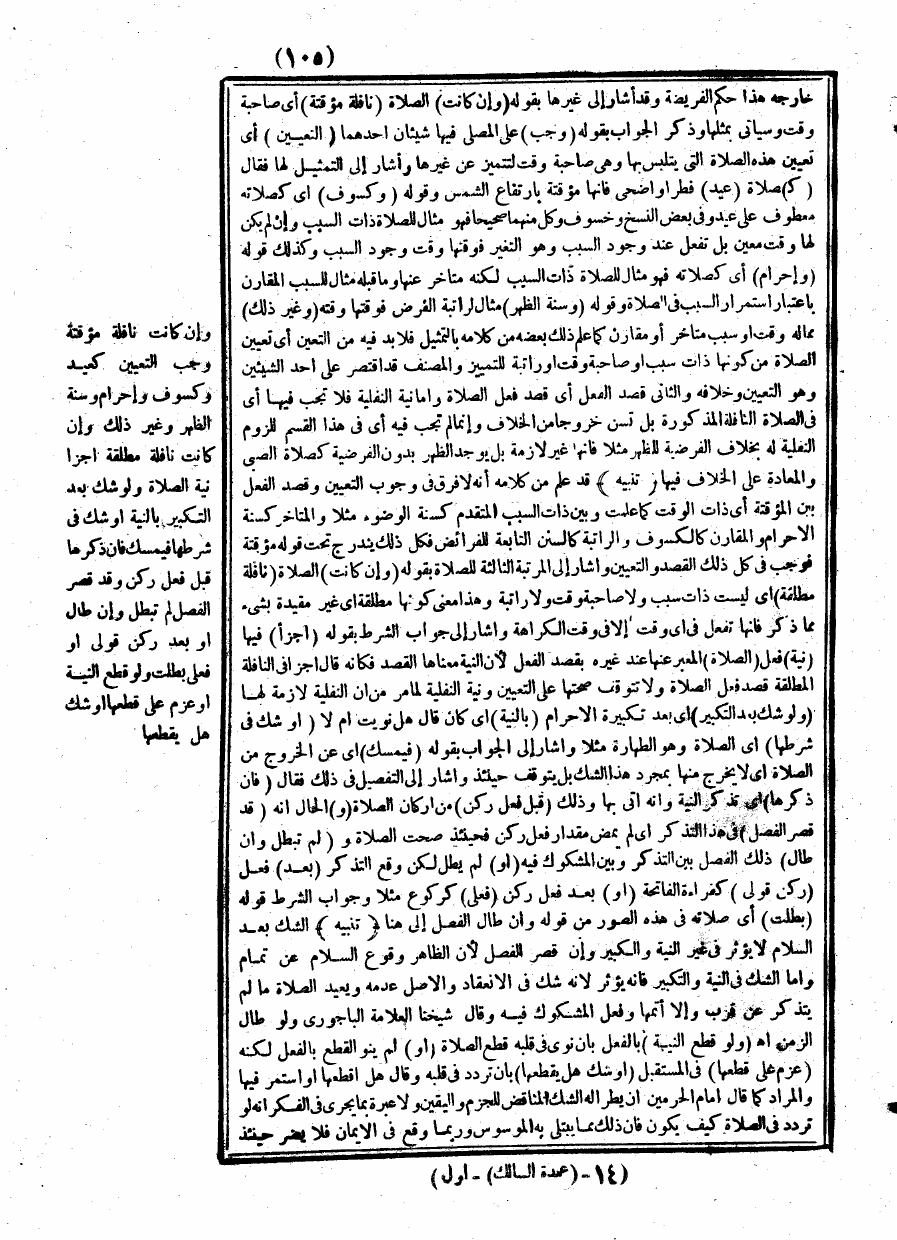 (١٠٥)
خارجه هذا حكم الفريضة وقد أشار إلى غيرها بقوله (وإن كانت) الصلاة (نافلة مؤقتة) أى صاحبة
وقت وسيأتى بمثلها وذكر الجواب بقوله (وجب) على المصلى فيها شيئان احدهما (التعيين) أى
تعيين هذه الصلاة التى يتلبس بها وهى صاحبة وقت لتتميز عن غيرها وأشار إلى التمثيل لها فقال
(ك) صلاة (عيد) فطر او اضحى فانها مؤقتة بارتفاع الشمس وقوله (وكسوف) اى كصلاته
معطوف على عيد وفى بعض النسخ وخسوف وكل منهما صحيحا فهو مثال للصلاة ذات السبب وإن لم يكن
لها وقت معين بل تفعل عند وجود السبب وهو التغير فوقتها وقت وجود السبب وكذلك قوله
(وإحرام) أى كصلاته فهو مثال للصلاة ذات السبب لكنه متاخر عنها وما قبله مثال للسبب المقارن
باعتبار استمرار السبب فى الصلاة وقوله (وسنة الظهر) مثال لراتبة الفرض فوقتها وقته (وغير ذلك)
مماله وقت او سبب متاخر أو مقارن كما علم ذلك بعضه من كلامه بالتمثيل فلابد فيه من التعين أى تعيين
الصلاة من كونها ذات سبب او صاحبة وقت او راتبة للتمييز والمصنف قد اقتصر على احد الشيئين
وهو التعيين وخلافه والثانى قصد الفعل أى قصد فعل الصلاة واما نية النفلية فلا تجب فيها أى
فى الصلاة النافلة المذكورة بل تسن خروجا من الخلاف وإنما لم تجب فيه أى فى هذا القسم للزوم
النفلية له بخلاف الفرضية للظهر مثلا فانها غير لازمة بل يوجد الظهر بدون الفرضية كصلاة الصبى
والمعادة على الخلاف فيها (تنبيه) قد علم من كلامه أنه لافرق فى وجوب التعيين وقصد الفعل
بين المؤقتة أى ذات الوقت كما علمت وبين ذات السبب المتقدم كسنة الوضوء مثلا والمتاخر كسنة
الاحرام والمقارن كالكسوف والراتبة كالسنن التابعة للفرائض فكل ذلك يندرج تحت قوله مؤقتة
فوجب فى كل ذلك القصد والتعيين واشار إلى المرتبة الثالثة للصلاة بقوله (وإن كانت) الصلاة (نافلة
مطلقة) اى ليست ذات سبب ولا صاحبة وقت ولا راتبة وهذا معنى كونها مطلقة اى غير مقيدة بشىء
مما ذكر فانها تفعل فى اى وقت إلا فى وقت الكراهة واشار إلى جواب الشرط بقوله (اجزأ) فيها
(نية) فعل (الصلاة) المعبر عنها عند غيره بقصد الفعل لأن النية معناها القصد فكانه قال اجزا فى النافلة
المطلقة قصد فعل الصلاة ولا تتوقف صحتها على التعيين ونية النفلية لما مر من ان النفلية لازمة لها
(ولو شك بعد التكبير) اى بعد تكبيرة الاحرام (بالنية) اى كان قال هل نويت ام لا (او شك فى
شرطها) اى الصلاة وهو الطهارة مثلا واشار إلى الجواب بقوله (فيمسك) اى عن الخروج من
الصلاة اى لا يخرج منها بمجرد هذا الشك بل يتوقف حينئذ واشار إلى التفصيل فى ذلك فقال (فان
ذكرها) اى تذكر النية وانه اتى بها وذلك (قبل فعل ركن) من اركان الصلاة (و) الحال انه (قد
قصر الفصل) فى هذا التذكر اى لم يمض مقدار فعل ركن فحينئذ صحت الصلاة و (لم تبطل وان
طال) ذلك الفصل بين التذكر وبين المشكوك فيه (او) لم يطل لكن وقع التذكر (بعد) فعل
(ركن قولى) كقراءة الفاتحة (او) بعد فعل ركن (فعلى) كركوع مثلا وجواب الشرط قوله
(بطلت) أى صلاته فى هذه الصور من قوله وان طال الفصل إلى هنا (تنبيه) الشك بعد
السلام لا يؤثر فى غير النية والكبير وإن قصر الفصل لأن الظاهر وقوع السلام عن تمام
واما الشك فى النية والتكبير فانه يؤثر لانه شك فى الانعقاد والاصل عدمه ويعيد الصلاة ما لم
يتذكر عن قرب وإلا أتمها وفعل المشكوك فيه وقال شيخنا العلامة الباجورى ولو طال
الزمن اه (ولو قطع النية) بالفعل بان نوى فى قلبه قطع الصلاة (او) لم ينو القطع بالفعل لكنه
(عزم على قطعها) فى المستقبل (او شك هل يقطعها) بان تردد فى قلبه وقال هل اقطعها او استمر فيها
والمراد كما قال امام الحرمين ان يطرا له الشك المناقض للجزم واليقين ولا عبرة بما يجرى فى الفكر انه لو
تردد فى الصلاة كيف يكون فان ذلك مما يبتلى به الموسوس وربما وقع فى الايمان فلا يضر حينئذ
وإن كانت نافلة مؤقتة
وجب التعيين كعيد
وكسوف وإحرام وسنة
الظهر وغير ذلك وإن
كانت نافلة مطلقة اجزا
نية الصلاة ولو شك بعد
التكبير بالنية او شك فى
شرطها فيمسك فان ذكرها
قبل فعل ركن وقد قصر
الفصل لم تبطل وإن طال
او بعد ركن قولى او
فعلى بطلت ولو قطع النية
او عزم على قطعها او شك
هل يقطعها
(١٤ - (عمدة السالك) - اول)